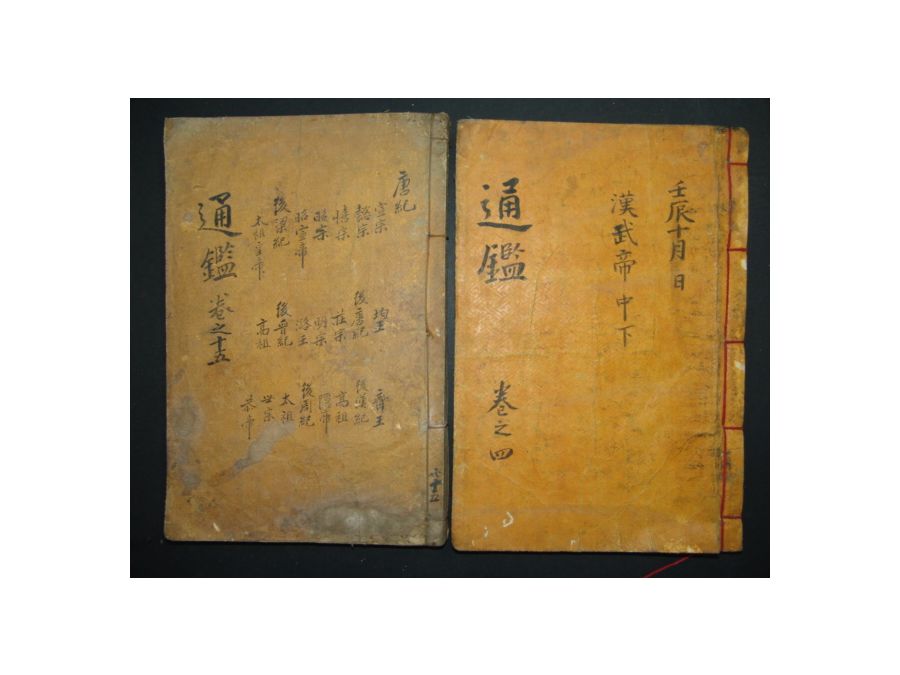 壬辰十月 日
漢武帝 中 下
通鑑 卷之四
唐紀
宣宗
懿宗
僖宗
昭宗
昭宣帝
後梁紀
太祖皇帝
均王
後唐紀
莊宗
明宗
潞王
後晉紀
高祖
齊王
後漢紀
高祖
隱帝
後周紀
太祖
世宗
恭帝
通鑑 卷之十五